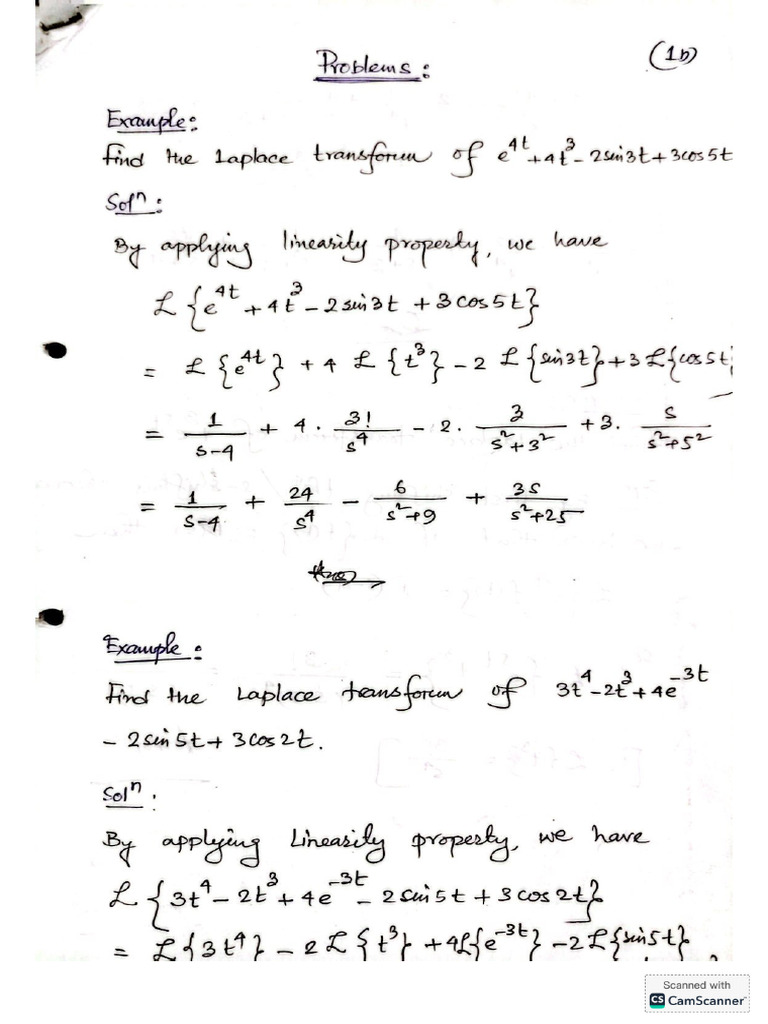 (1b)
Problems:
Example:
Find the Laplace transform of e^{4t}+4t^3-2sin3t+3cos5t
Sol^n:
By applying linearity property, we have
ℒ{e^{4t}+4t^3-2sin3t+3cos5t}
= ℒ{e^{4t}}+4 ℒ{t^3}-2 ℒ{sin3t}+3ℒ{cos5t
= 1/(s-4) + 4·3!/s^4 - 2·3/(s^2+3^2) +3·s/(s^2+5^2)
= 1/(s-4) + 24/s^4 - 6/(s^2+9) + 3s/(s^2+25)
Example:
Find the Laplace transform of 3t^4-2t^3+4e^{-3t}
- 2sin5t+3cos2t.
Sol^n:
By applying Linearity property, we have
ℒ{3t^4-2t^3+4e^{-3t}-2sin5t+3cos2t}
= ℒ{3t^4}-2ℒ{t^3}+4ℒ{e^{-3t}}-2ℒ{sin5t}
Scanned with
CS CamScanner